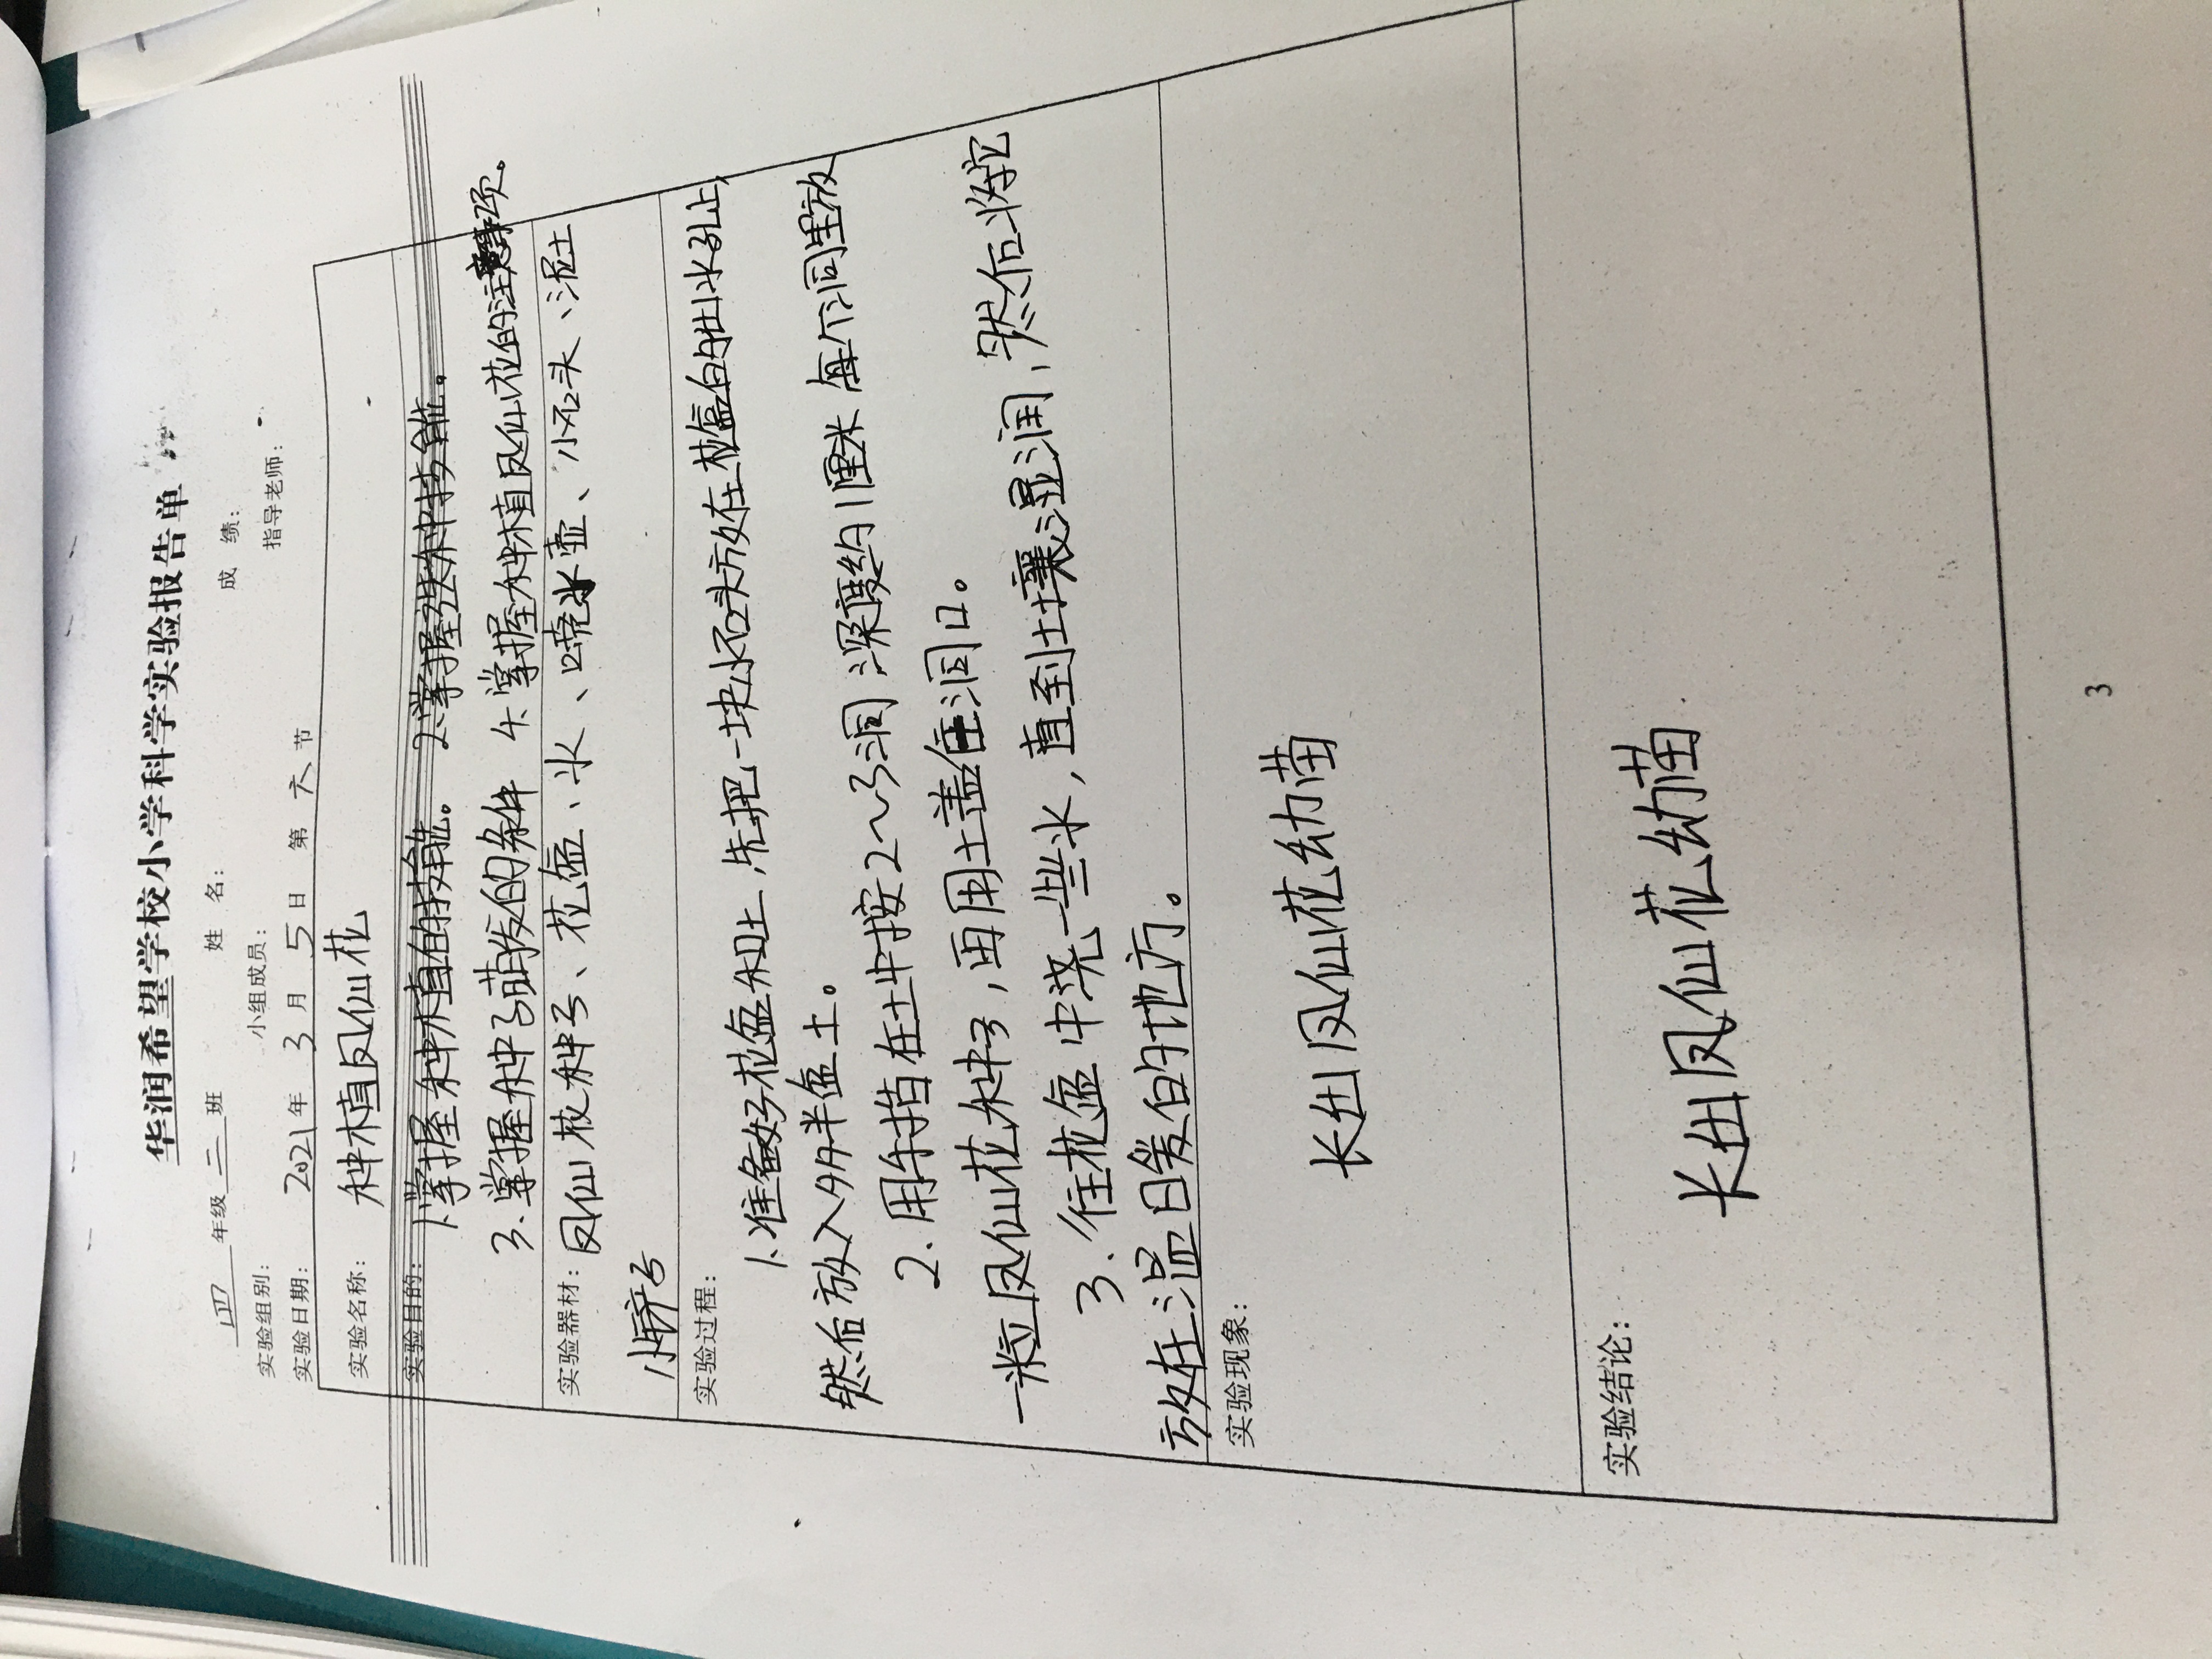 华润希望学校小学科学实验报告单
四 年级 二 班 姓 名: 成 绩:
实验组别: 小组成员: 指导老师:
实验日期: 2021年 3 月 5 日 第 六 节
实验名称: 种植凤仙花
实验目的: 1、掌握种植的技能。 2、掌握 种技能。
3、掌握种子萌发的条件 4、掌握种植凤仙花的注意事项。
实验器材: 凤仙花种子、花盆、水、浇水壶、小石头、泥土
小铲子
实验过程:
1、准备好花盆和土,先把一块小石头放在花盆的出水孔上,
然后放入多半盆土。
2、用手指在土中按2~3洞 深度约1厘米 每个洞里放
一粒凤仙花种子,再用土盖住洞口。
3、往花盆中浇一些水,直到土壤湿润,然后将它
放在温暖的地方。
实验现象:
长出凤仙花幼苗
实验结论:
长出凤仙花幼苗
3